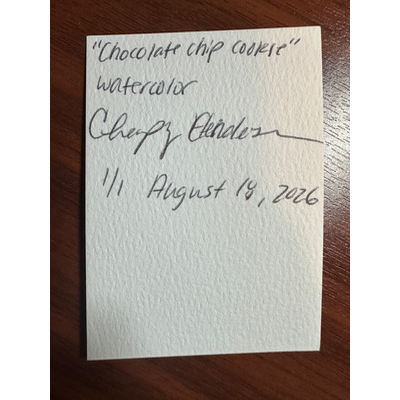 "Chocolate chip cookie"
watercolor
1/1 August 19, 2026